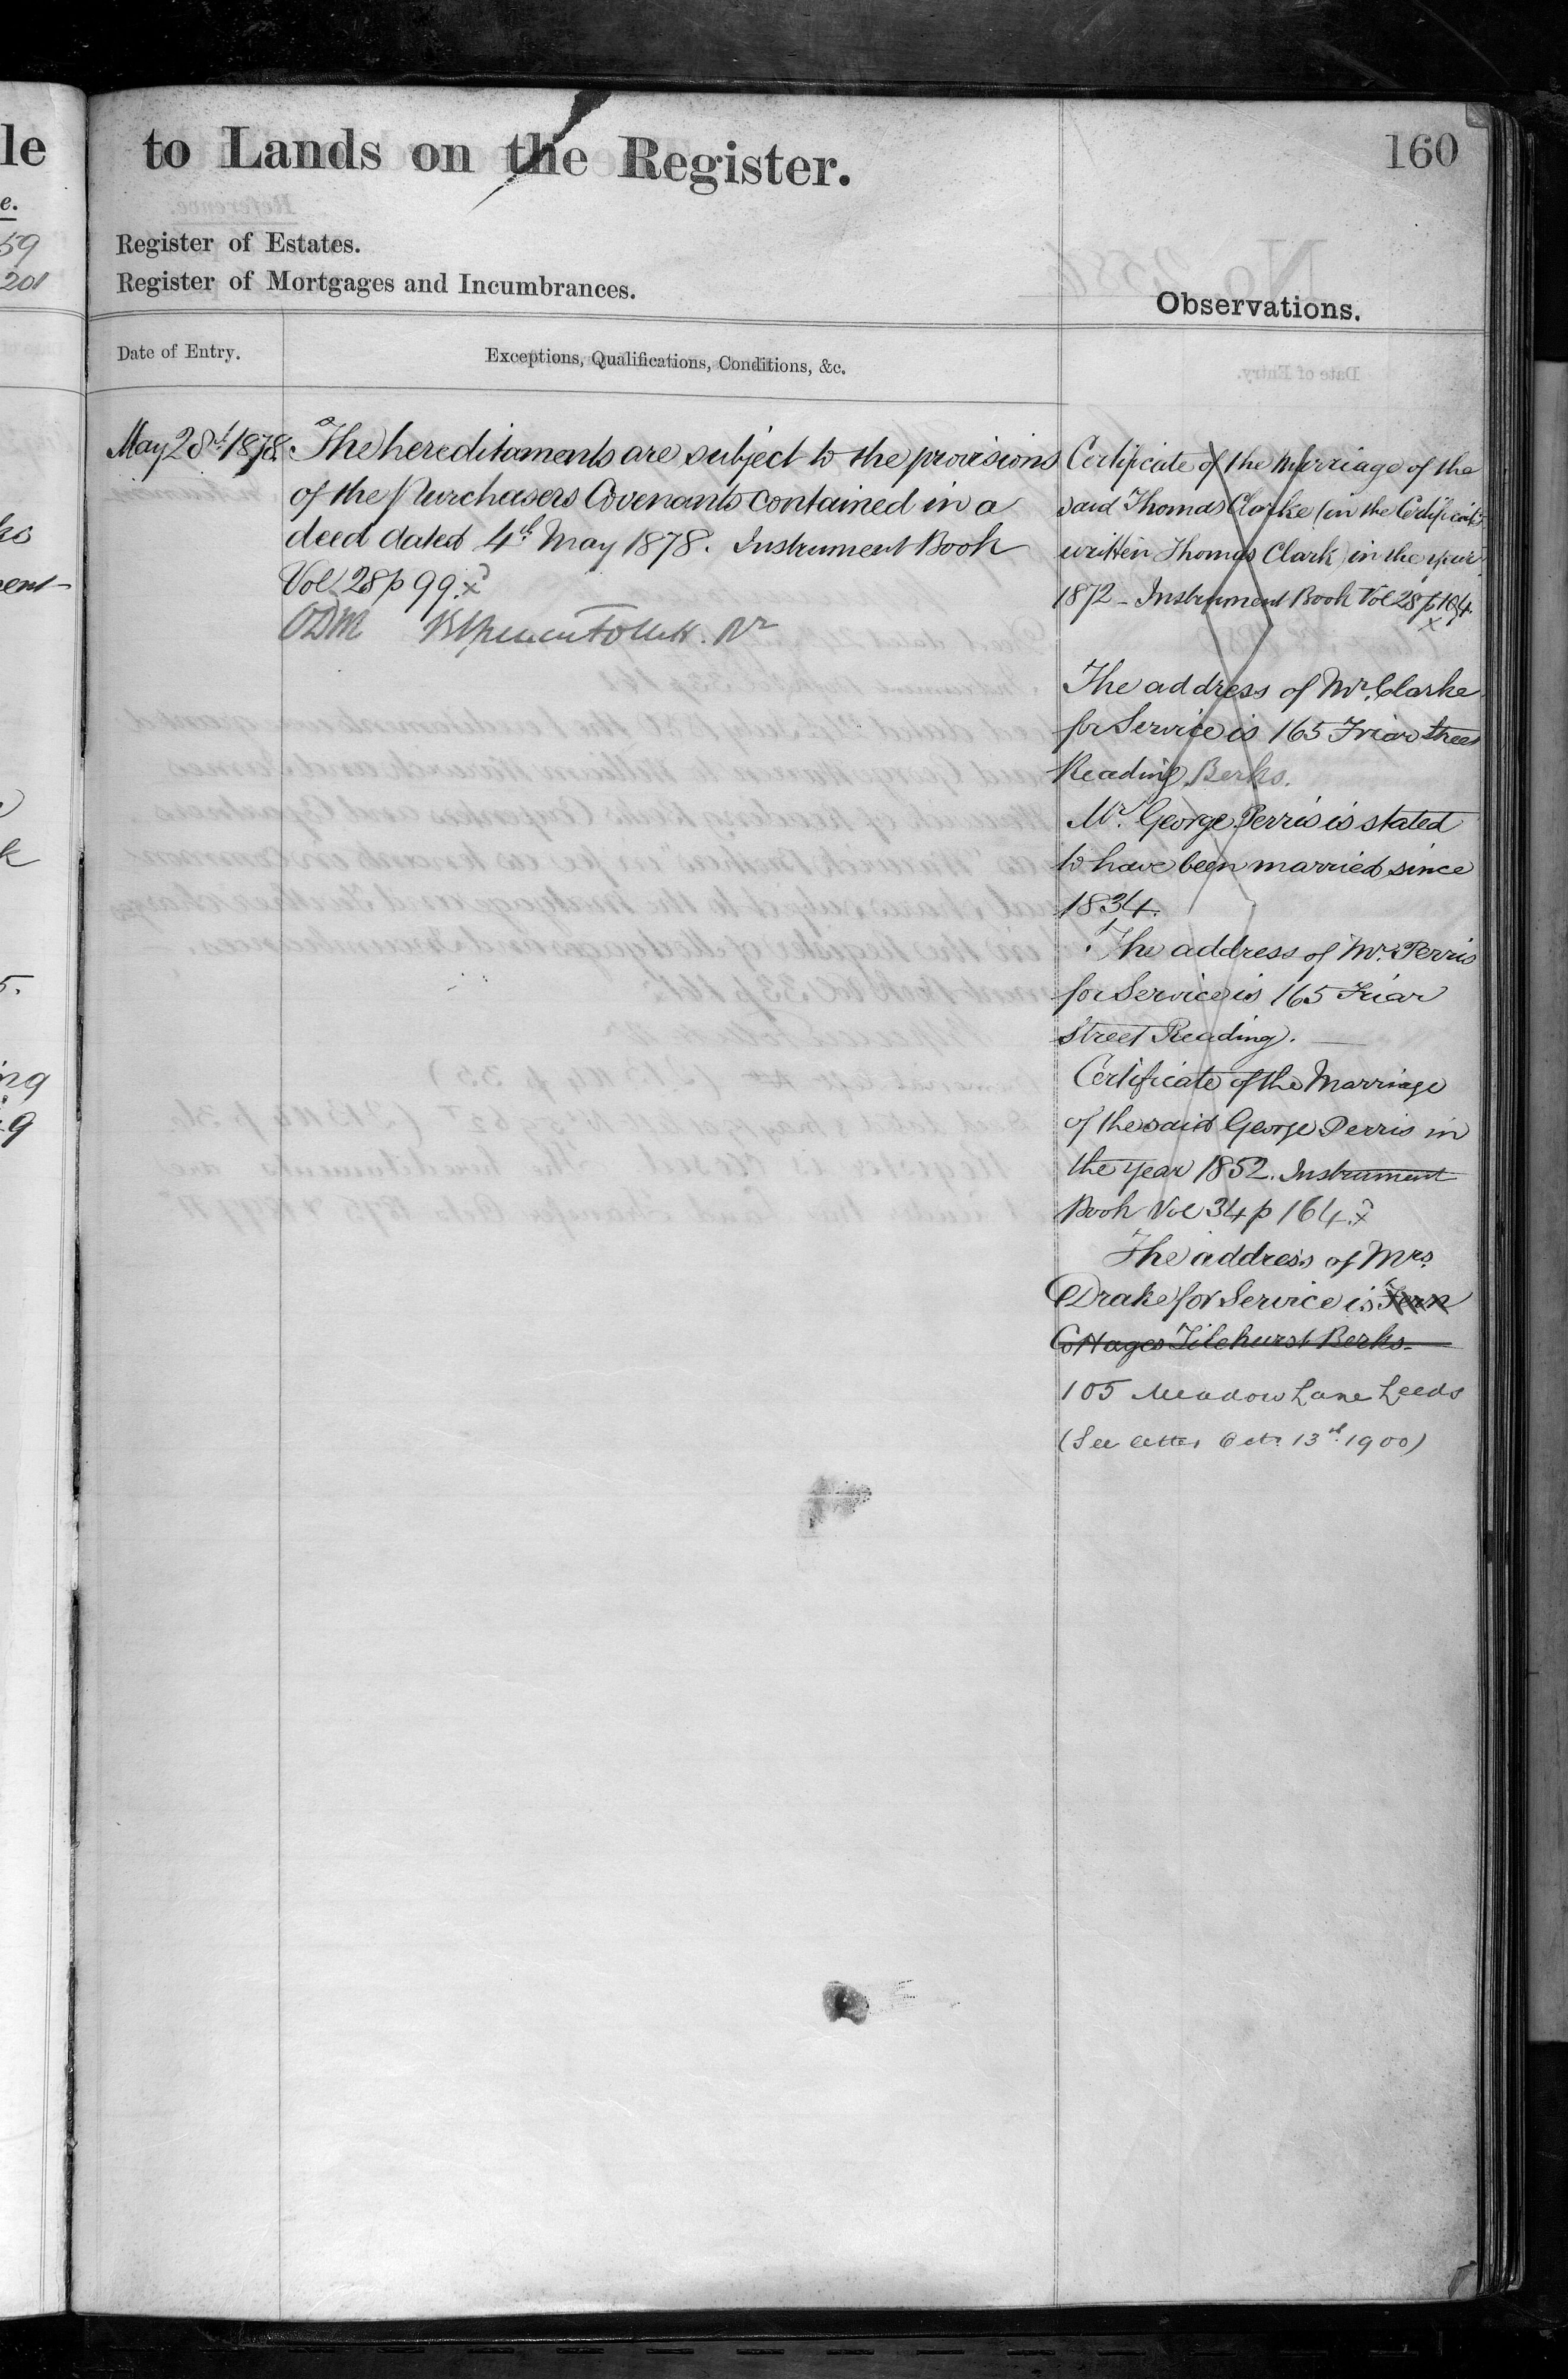 le
e.
59
201
ing
9
5.
to Lands on the Register.
160
Register of Estates.
Register of Mortgages and Incumbrances.
Observations.
Date of Entry.
Exceptions, Qualifications, Conditions, &c.
May 28th 1878.
The hereditaments are subject to the provisions
of the Purchasers Covenants contained in a
deed dated 4th May 1878. Instrument Book
Vol 28 p 99. x
Certificate of the Marriage of the
said Thomas Clarke (in the Certificate
written Thomas Clark) in the year
1872 - Instrument Book Vol 28 p 104.
x
The address of Mr. Clarke
for Service is 165 Friar Street
Reading Berks.
Mr. George Perris is stated
to have been married since
1834.
The address of Mr. Perris
for Service is 165 Friar
Street Reading.
Certificate of the Marriage
of the said George Perris in
the year 1852. Instrument
Book Vol 34 p 164. x
The address of Mrs.
Drake for Service is Fern
Cottages Tilehurst Berks.
105 Meadow Lane Leeds
(See letter Octr. 13th 1900)